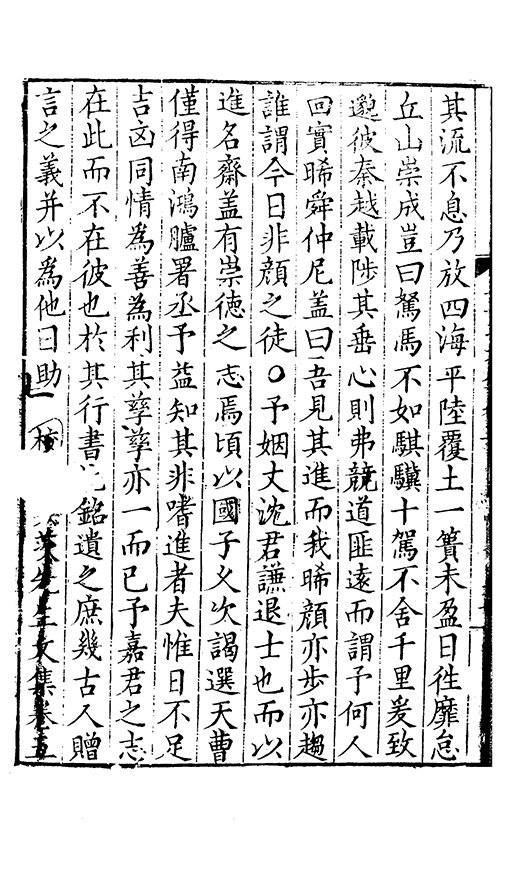 其流不息乃放四海平陸覆土一簣未盈日徃靡怠
丘山崇成豈曰駑馬不如騏驥十駕不舍千里爰致
邈彼秦越載陟其垂心則弗競道匪遠而謂予何人
回實晞舜仲尼盖曰吾見其進而我晞顔亦步亦趨
誰謂今日非顔之徒〇予姻丈沈君謙退士也而以
進名齋盖有崇德之志焉頃以國子乂次謁選天曹
僅得南鴻臚署丞予益知其非嗜進者夫惟日不足
吉凶同情為善為利其孳孳亦一而已予嘉君之志
在此而不在彼也於其行書銘遺之庶幾古人贈
言之義并以為他日助
先生文集卷五